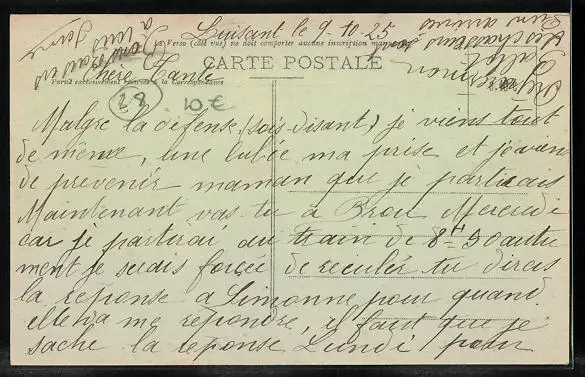 Luisant le 9-10-25
Le Verso (côté vue) ne doit comporter aucune inscription
CARTE POSTALE
Partie exclusivement réservée à la Correspondance
Chère Tante
28
10 €
Malgre la défense, (sois-disant) je viens tout
de même, une lubée ma prise et je vien
de prevenir maman que je partirais
Maintenant vas-tu a Brou Mercredi
car je partirai au train de 8H 30 autre
ment je serais forcée de reculer tu diras
la reponse a Simonne pour quand
elle va me repondre, il faut que je
sache la reponse Lundi pour